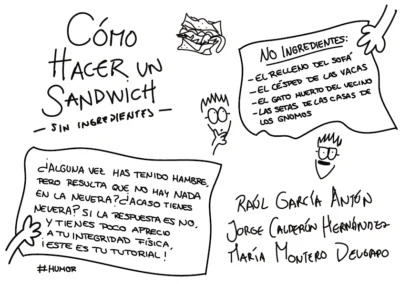 CÓMO
HACER UN
SANDWICH
- SIN INGREDIENTES -
NO INGREDIENTES:
- EL RELLENO DEL SOFÁ
- EL CÉSPED DE LAS VACAS
- EL GATO MUERTO DEL VECINO
- LAS SETAS DE LAS CASAS DE
LOS GNOMOS
¿ALGUNA VEZ HAS TENIDO HAMBRE,
PERO RESULTA QUE NO HAY NADA
EN LA NEVERA? ¿ACASO TIENES
NEVERA? SI LA RESPUESTA ES NO,
Y TIENES POCO APRECIO
A TU INTEGRIDAD FÍSICA,
¡ESTE ES TU TUTORIAL!
#HUMOR
RAÚL GARCÍA ANTÓN
JORGE CALDERÓN HERNÁNDEZ
MARÍA MONTERO DELGADO